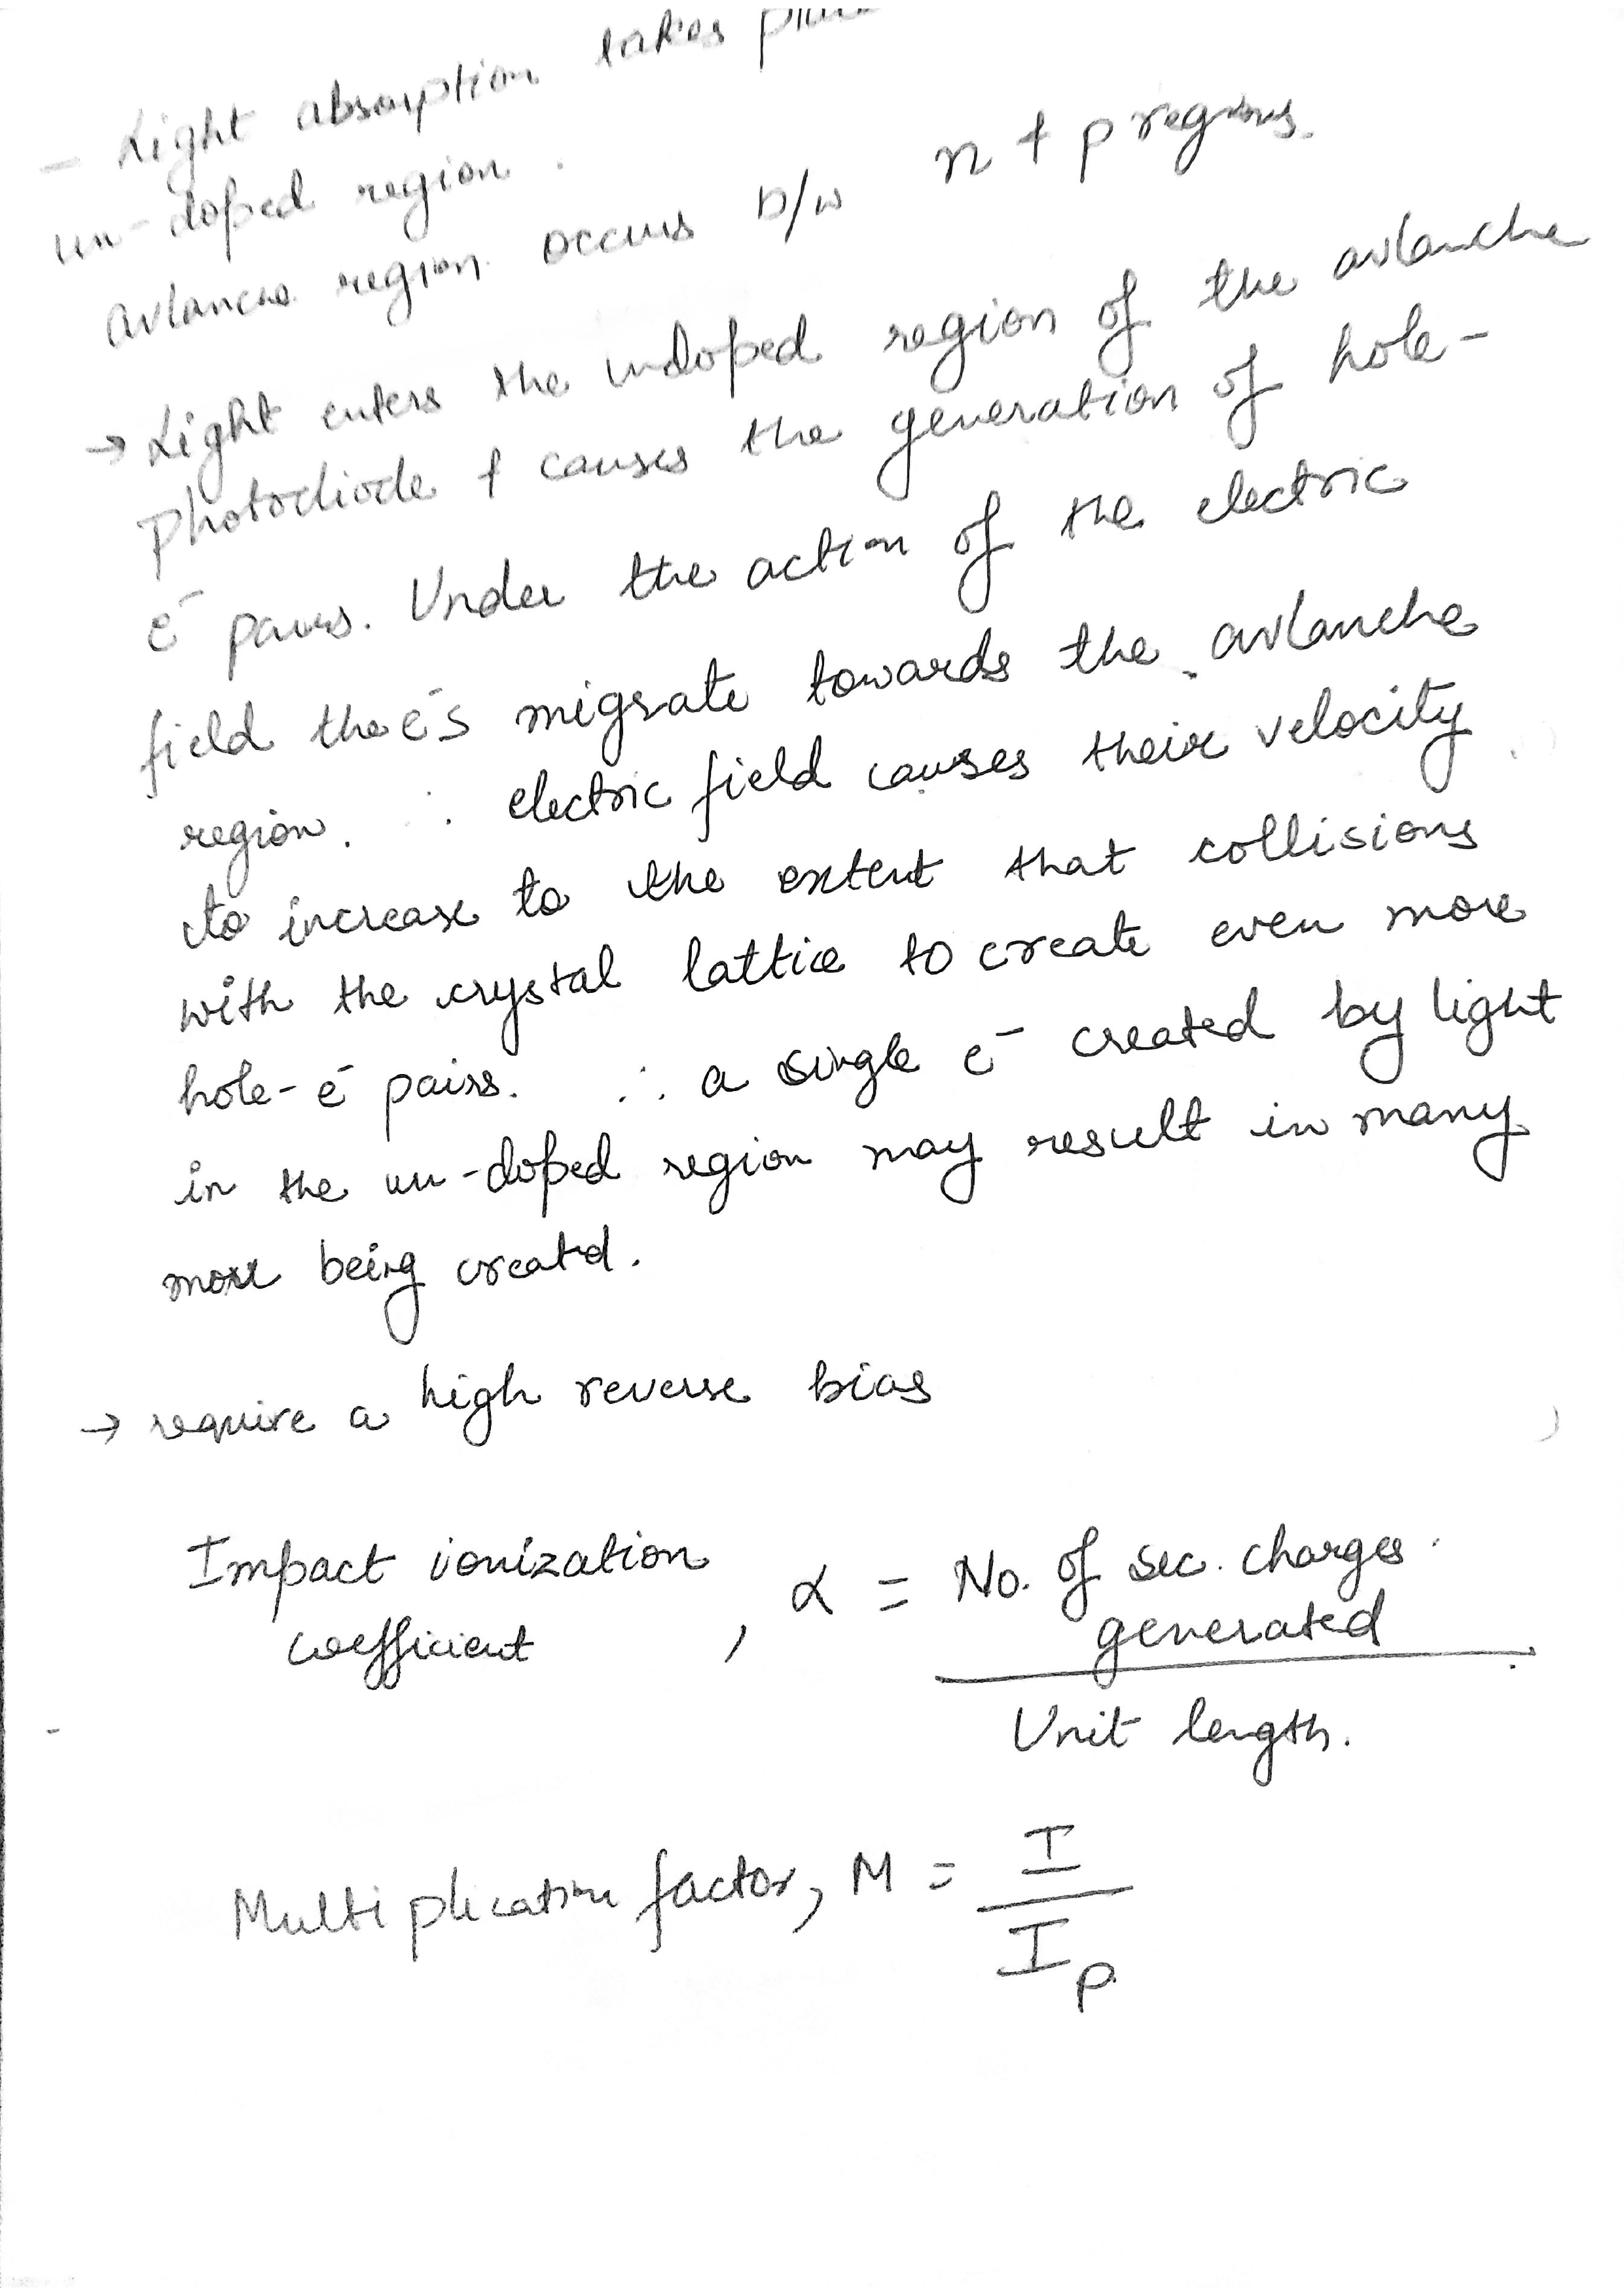 - Light absorption takes
un-doped region.
avlanche region occurs b/w n + p regions.
→ Light enters the undoped region of the avlanche
photodiode + causes the generation of hole-
e⁻ pairs. Under the action of the electric
field the e⁻s migrate towards the avlanche
region. ∴ electric field causes their velocity
to increase to the extent that collisions
with the crystal lattice to create even more
hole-e⁻ pairs. ∴ a single e⁻ created by light
in the un-doped region may result in many
more being created.
→ require a high reverse bias
Impact ionization coefficient, α = No. of sec. charges
generated
Unit length.
Multiplication factor, M = I
I_p